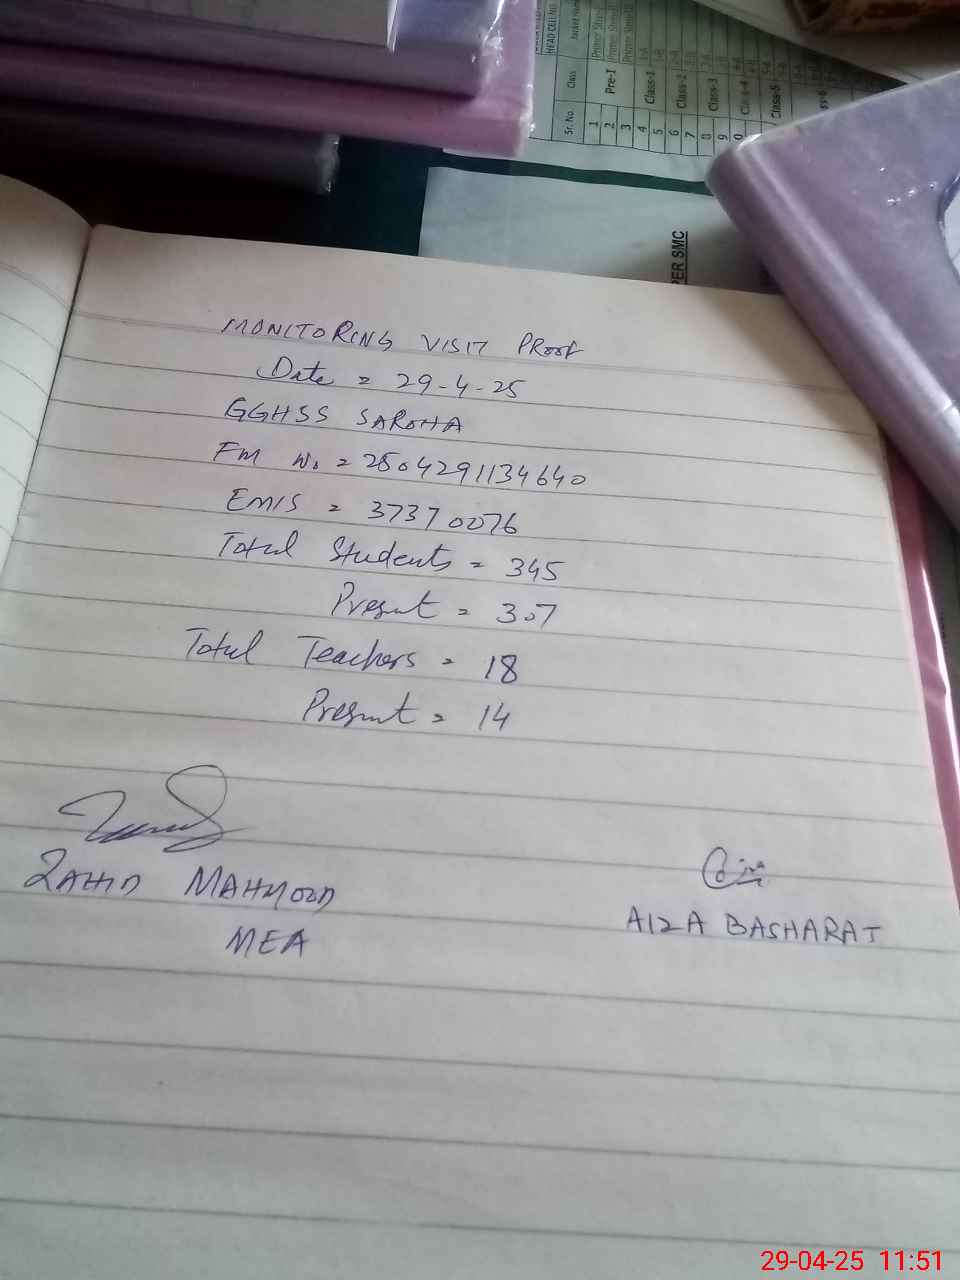 HEAD CELL NO.
Sr. No. Class
1
2 Pre-I
3
4 Class-1
5
6 Class-2
7
8 Class-3
9
Class-4
Class-5
PER SMC
MONITORING VISIT PROOF
Date = 29-4-25
GGHSS SAROHA
FM No = 2504291134640
EMIS = 37370076
Total Students = 345
Present = 307
Total Teachers = 18
Present = 14
ZAHID MAHMOOD
MEA
AIZA BASHARAT
29-04-25 11:51